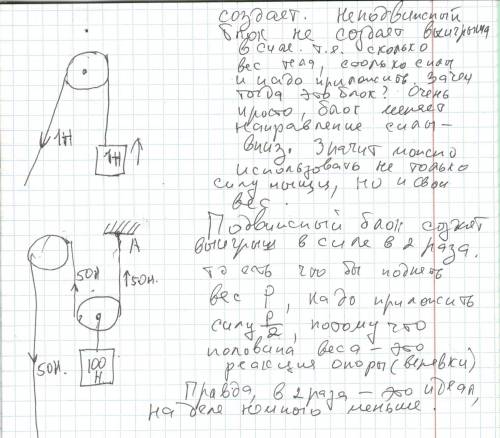 создает. Неподвижный
блок не создает выигрыша
в силе. т.е. сколько
вес тела, столько силы
и надо приложить. Зачем
тогда это блок? Очень
просто, блок меняет
направление силы -
вниз. Значит можно
использовать не только
силу мышц, но и свой
вес.
1Н
1Н
Подвижный блок создает
выигрыш в силе в 2 раза.
то есть что бы поднять
вес P, надо приложить
силу P/2, потому что
половина веса - это
реакция опоры (веревки)
Правда, в 2 раза - это идеал,
на деле немного меньше.
A
50Н
50Н.
50Н.
100
Н